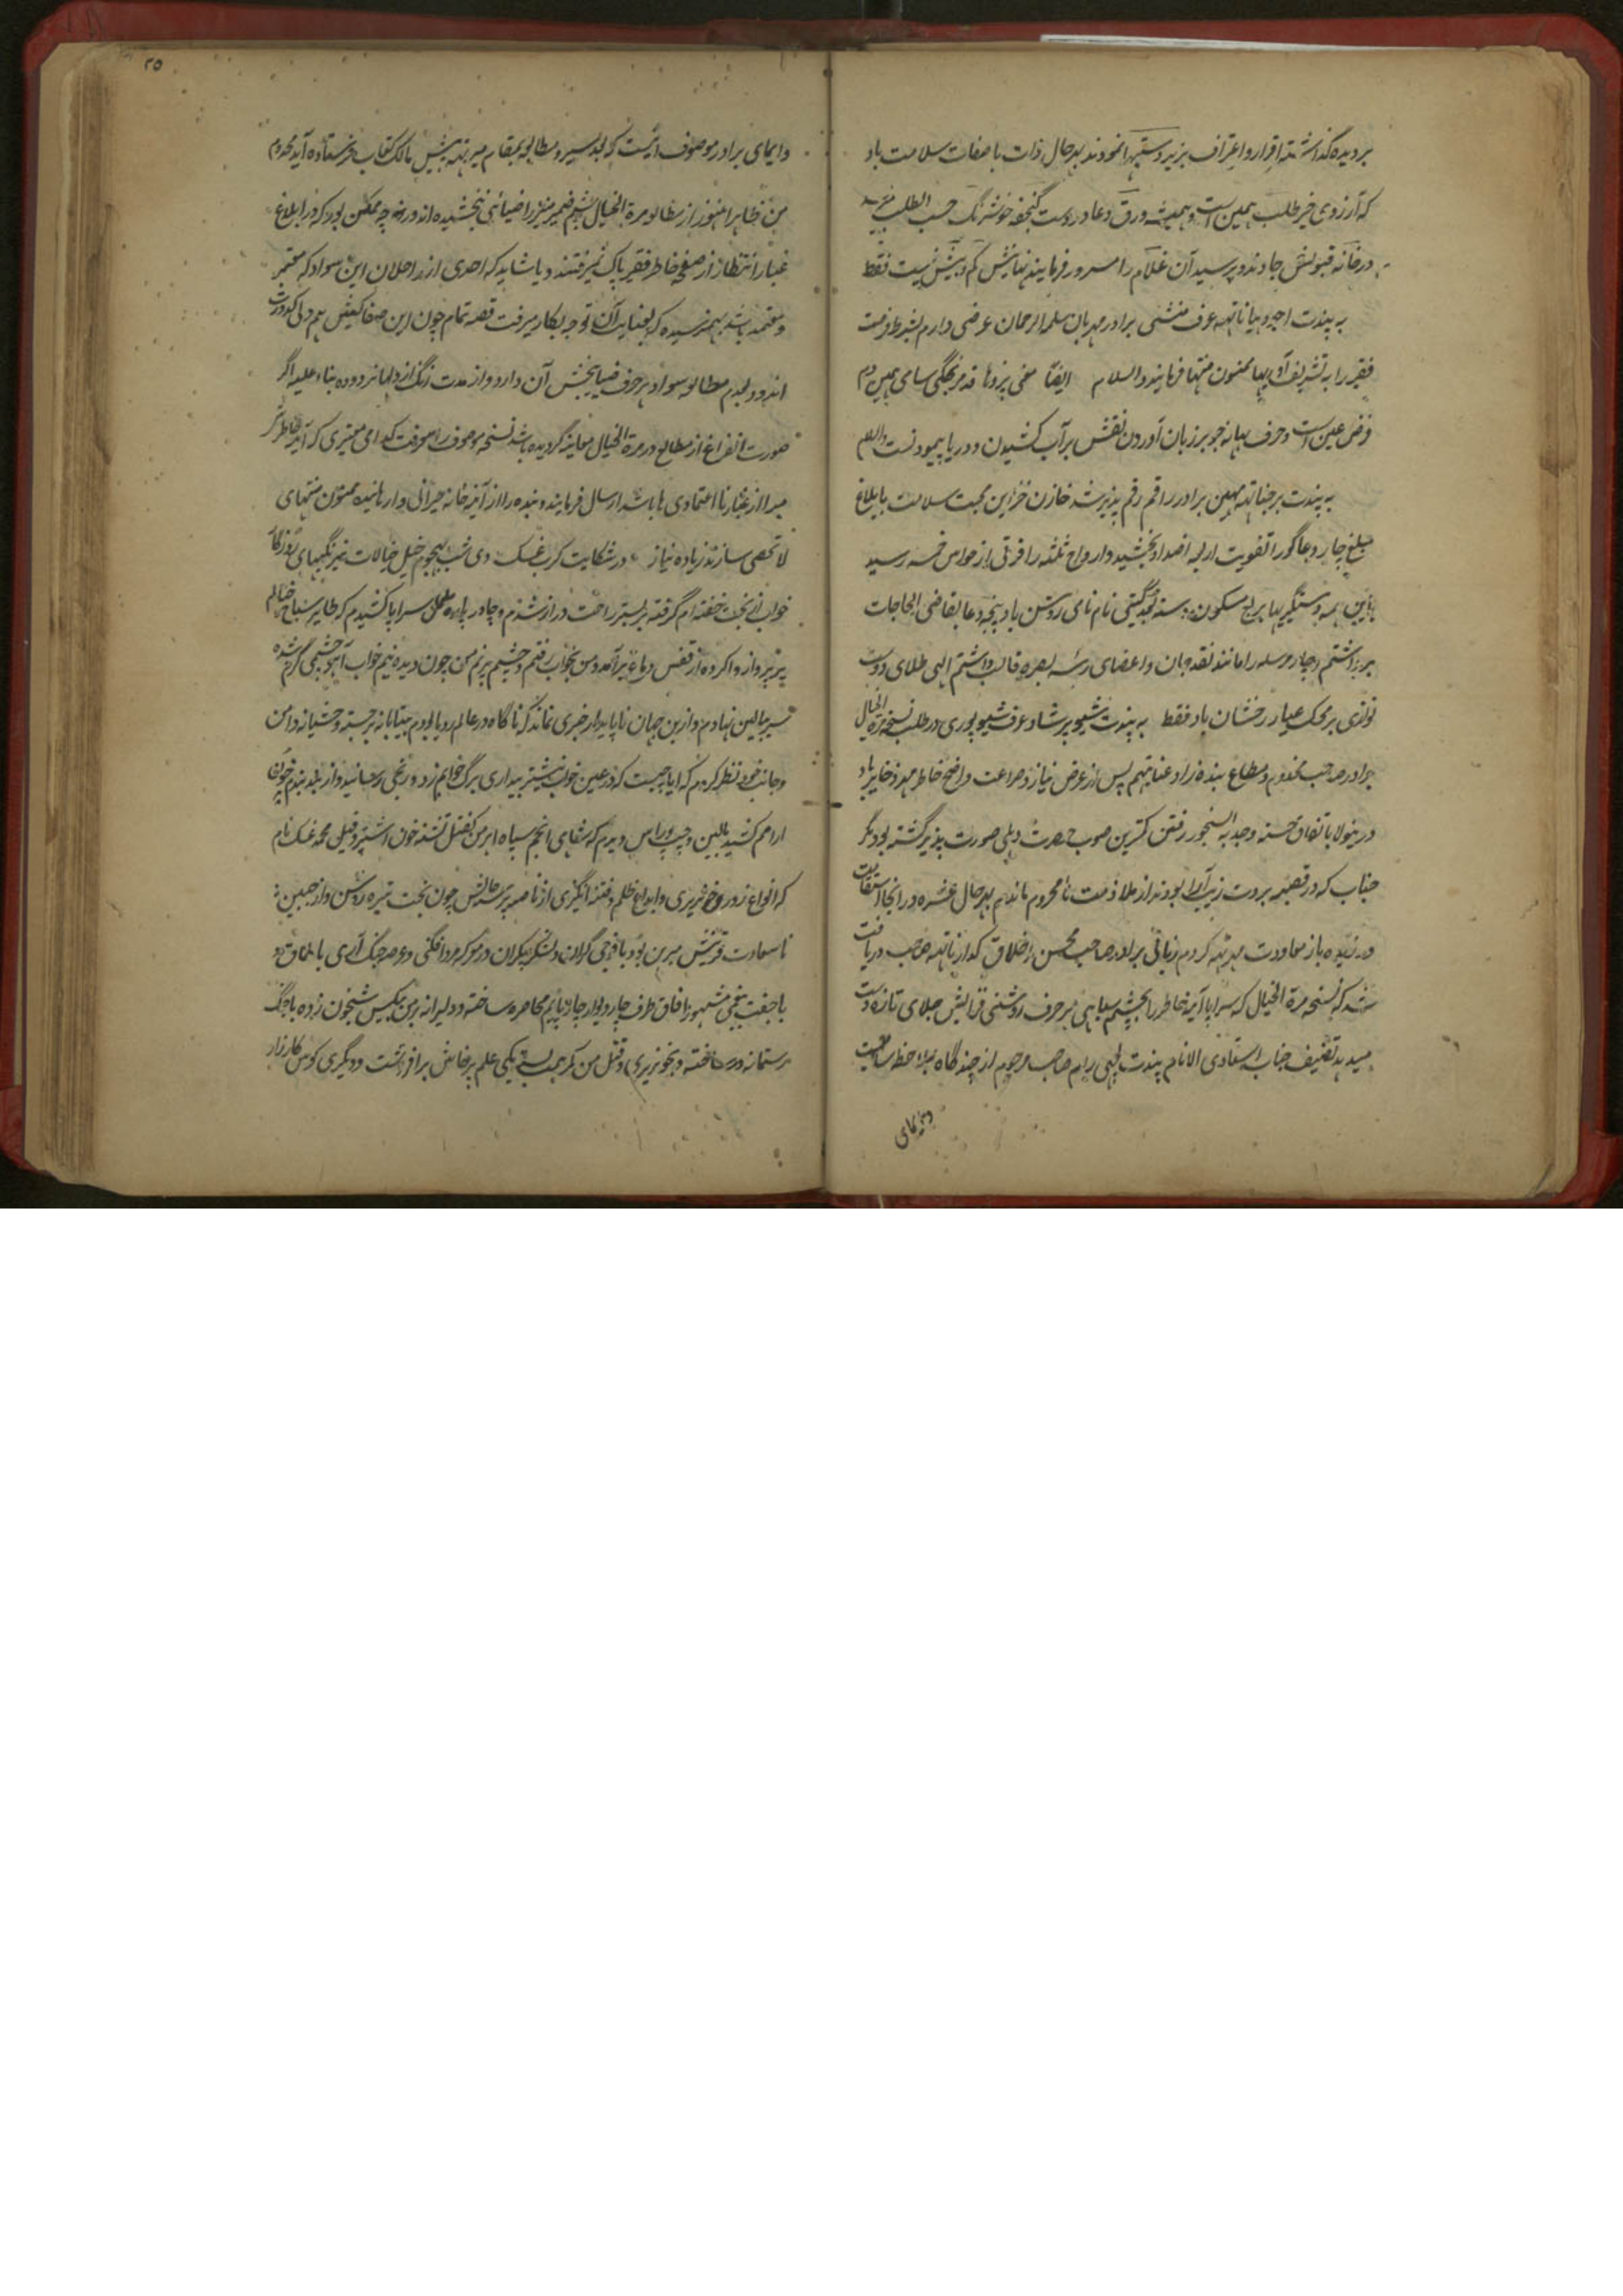 بردیده گذاشته اقرار و اعتراف بزبردستیها نمودند بهرحال ذات با صفات سلامت باد
که آرزوی خیر طلب همین است و همیشه ورق دعا در دست گنجفه خوشرنگ حسب الطلب
در خانه قبولش جا دهند و پرسید آن غلام را مسرور فرمایند نهایتش کم و بیش نیست فقط
به پندت اجودهیا ناتهه عرف منشی برادر مهربان سلمه الرحمان عرضی دارم بشرط فرصت
فقیر را به تشریف آوریها ممنون منتها فرمایند والسلام ایضا
فرض عین است و حرف بهانه جو بر زبان آوردن نقش بر آب کشیدن و دریا پیمودنست والسلام
به پندت برجناتهه مهین برادر راقم رقم پذیر شد خازن خزاین محبت سلامت بابلاغ
مبلغ چار دعاگو را تقویت اربعه اضداد بخشید و ارواح ثلثه را فرقی از حواس خمسه رسید
باین همه دستگیریها بربع مسکون و سته گیتی نام نامی روشن باد پنجه دعا بقاضی الحاجات
برداشتم و چار مرسله را مانند نقد جان و اعضای رئیسه بصره قالب داشتم الهی طلای دوست
نوازی بر محک عیار رخشان باد فقط به پندت شیو پرشاد عرف شیو پوری در طلب نسخه مرة الخیال
برادر صاحب مخدوم و مطاع بنده زاد عنایتهم پس از عرض نیاز و ضراعت واضح خاطر مهر ذخایر باد
درینولا باتفاق حسنه رفتن کمترین صوب حضرت دهلی صورت پذیر گشته بود مگر
جناب که در قصبه بروت زیب آرا بودند از ملازمت تا محروم ماندم بهرحال عشره در آنجا استقامت
ورزیده باز معاودت میرتهه کردم زبانی برادر صاحب محسن اخلاق کدارناتهه صاحب دریافت
شد که نسخه مرة الخیال که سراپا آئینه خاطر را بچشم سیاهی هر حرف روشنی فزایش جلای تازه دست
میدهد تصنیف جناب استادی الانام پندت لچهی رام صاحب مرحوم از چندگاه بملاحظه سامیست
وایمای
۲۵
وایمای برادر موصوف آنست که بعد سیر و مطالعه بمقام میرتهه پیش مالک کتاب فرستاده آید مخدوم
من ظاهرا هنوز از مطالعه مرة الخیال بچشم ضمیر منیر را ضیائی نبخشیده اند ورنه چه ممکن بود که در ابلاغ
غبار انتظار از صفحه خاطر فقیر پاک نمیرفتند و یا شاید که احدی از راحلان این سواد که معتبر
و معتمد باشد بهم نرسیده که بعنایت آن توجه بکار میرفت قصه تمام چون این صفا کیش هم دلی کدورت
اندود بعدم مطالعه سواد هر حرف ضیا بخش آن دارد و از مدت زنگ از دلها نزدوده بناء علیه اگر
صورت انفراغ از مطالعه مرة الخیال معاینه گردیده باشد نسخه موصوف را معرفت کدامی معتبری که آئینه خاطر شریف
مبرا از غبار نااعتمادی ها باشد ارسال فرمایند و بنده را از آئینه خانه حیرانی وارهانیده ممنون منتهای
لاتحصی سازند زیاده نیاز در شکایت کرب غسک دی شب بهجوم خیل خیالات نیرنگیهای روزگار
خواب از بخت خفته ام گرفته بر بستر راحت دراز شدم و چادر سراپا کشیدم که طایر سیاح خیالم
پر پرواز واکرده از قفس دماغ برآمد و من بخواب رفتم و چشم پر نم من چون دیده نیم خواب آهو چشمی گرم شده
سر ببالین نهادم و ازین جهان ناپایدار خبری نماند که ناگاه در عالم رویا بودم بیتابانه برجستم وحشیانه دامن
و جانب خود نظر کردم که آیا چیست که در عین خواب نیشتر بیداری برگ خوابم زد و رنجی رسانید و از بند بندم خون
آرامم کشید بالین و چپ و راس دیدم که سفاهای انجم سپاه ابرمن بقتل تشنه خون اشتر و فیل محمد غسک نام
که انواع زور و خونریزی و ابداع ظلم و فتنه انگیزی از ناصیه پر حالتش چون بخت تیره روشن و از جبین
نا سعادت قرینش مبرهن بود با فوجی گران و لشکر بیکران در معرکه مرد افگنی و عرصه جنگ آری با طمطراق
با جفت پنجمی مشهور آفاق طرف چار دیوار چارپائیم محاصره ساخته و دلیرانه برمن بیکس شبخون زده باجنگ
رستمانه در ساخته و بخونریزی و قتل من کمر همت بسته یکی علم پرخاش برافراشت و دیگری کوس کارزار